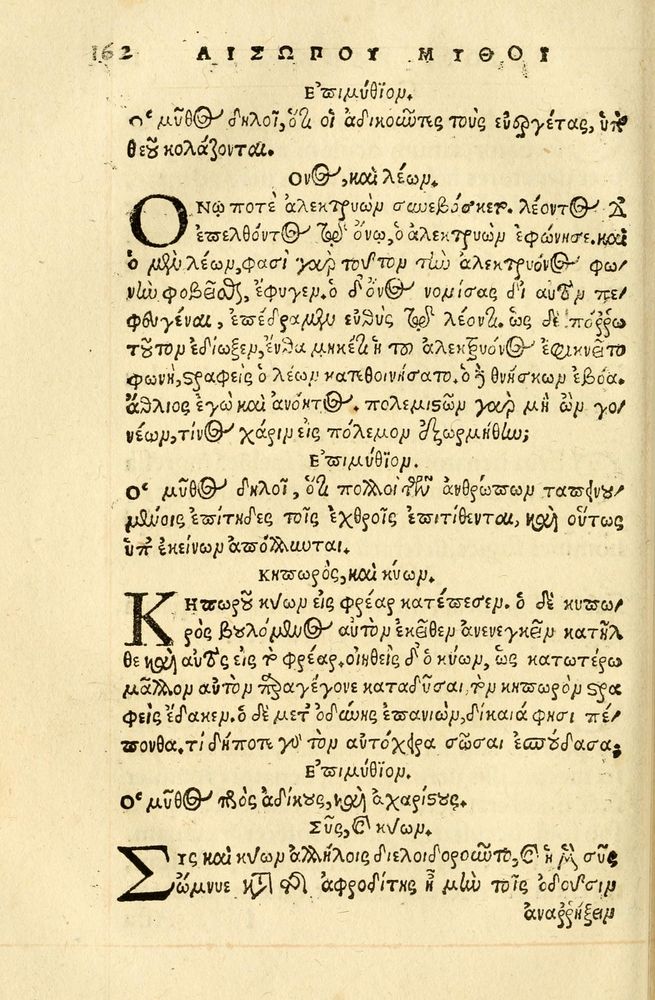 162 ΑΙΣΩΠΟΥ ΜΥΘΟΙ
Ἐπιμύθιον.
Ὁ μῦθος δηλοῖ, ὅτι οἱ ἀδικοῦντες τοὺς εὐεργέτας, ὑπὸ
θεοῦ κολάζονται.
Ονος, καὶ λέων.
ΟΝῳ ποτὲ ἀλεκτρυὼν συνεβόσκετο. λέοντος δ'
ἐπελθόντος τῷ ὄνῳ, ὁ ἀλεκτρυὼν ἐφώνησε. καὶ
ὁ μὲν λέων, φασὶ γὰρ τοῦτον τὴν ἀλεκτρυόνος φω/
νὴν φοβεῖσθαι, ἔφυγεν. ὁ δ' ὄνος νομίσας δι' αὐτὸν πε/
φευγέναι, ἐπέδραμεν εὐθὺς τῷ λέοντι. ὡς δὲ πόρρω
τοῦτον ἐδίωξεν, ἔνθα μηκέτι ἡ τοῦ ἀλεκτρυόνος ἐφικνεῖτο
φωνὴ, στραφεὶς ὁ λέων κατεθοινήσατο. ὁ δὲ θνήσκων ἐβόα.
ἄθλιος ἐγὼ καὶ ἀνόητος. πολεμιστῶν γὰρ μὴ ὢν γο/
νέων, τίνος χάριν εἰς πόλεμον ἐξωρμήθην;
Ἐπιμύθιον.
Ὁ μῦθος δηλοῖ, ὅτι πολλοὶ τῶν ἀνθρώπων ταπεινου/
μένοις ἐπίτηδες τοῖς ἐχθροῖς ἐπιτίθενται, καὶ οὕτως
ὑπ' ἐκείνων ἀπόλλυνται.
Κηπωρὸς, καὶ κύων.
ΚΗπωροῦ κύων εἰς φρέαρ κατέπεσεν. ὁ δὲ κηπω/
ρὸς βουλόμενος αὐτὸν ἐκεῖθεν ἀνενεγκεῖν κατῆλ
θε καὶ αὐτὸς εἰς τὸ φρέαρ. οἰηθεὶς δ' ὁ κύων, ὡς κατωτέρω
μᾶλλον αὐτὸν παραγέγονε καταδῦσαι, τὸν κηπωρὸν στρα
φεὶς ἔδακεν. ὁ δὲ μετ' ὀδύνης ἐπανιὼν, δίκαιά φησι πέ/
πονθα. τί δήποτε γὰρ τὸν αὐτόχειρα σῶσαι ἐσπούδασα;
Ἐπιμύθιον.
Ὁ μῦθος πρὸς ἀδίκους, καὶ ἀχαρίστους.
Σῦς, καὶ κύων.
Σῦς καὶ κύων ἀλλήλοις διελοιδοροῦντο, καὶ ἡ μὲν σῦς
ὤμνυε κατὰ τῆς ἀφροδίτης ἦ μὴν τοῖς ὀδοῦσιν
ἀναρρήξειν